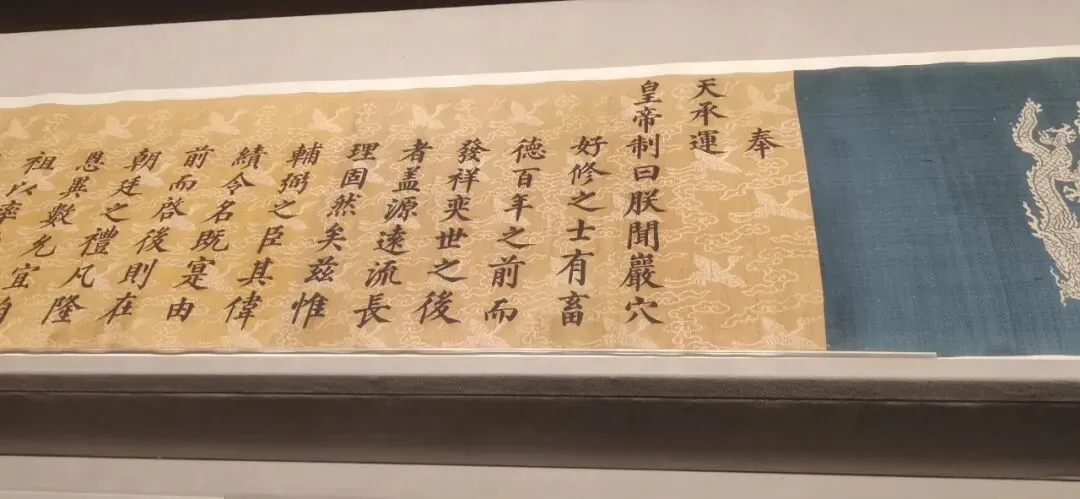 奉
天承運
皇帝制曰朕聞巖穴
好修之士有畜
德百年之前而
發祥奕世之後
者盖源遠流長
理固然矣茲惟
輔弼之臣其偉
績令名既寔由
前而啓後則在
朝廷之禮凡隆
恩異數允宜
祖以